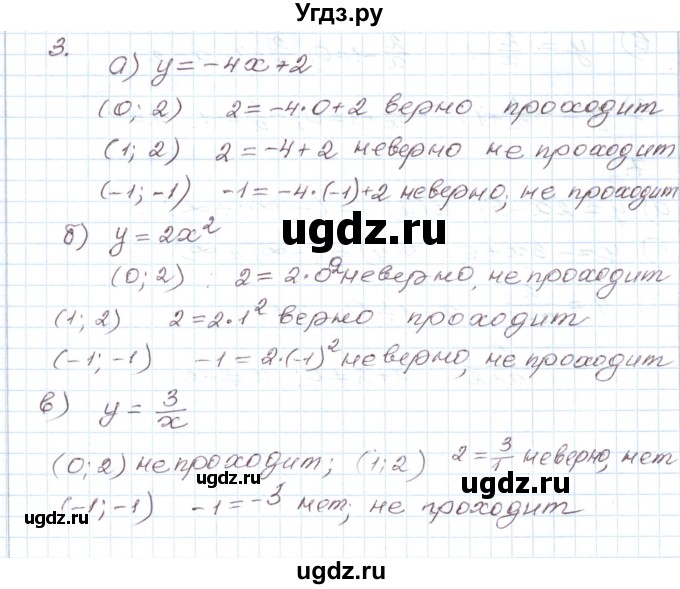 Угдз.ру
3.
а) y = -4x+2
(0; 2) 2 = -4·0+2 верно проходит
(1; 2) 2 = -4+2 неверно не проходит
(-1; -1) -1 = -4·(-1)+2 неверно, не проходит
б) y = 2x²
ugdz.ru
(0; 2) 2 = 2·0² неверно, не проходит
(1; 2) 2 = 2·1² верно проходит
(-1; -1) -1 = 2·(-1)² неверно, не проходит
в) y = 3/x
(0; 2) не проходит; (1; 2) 2 = 3/1 неверно, нет
ugdz.ru
(-1; -1) -1 = -3 нет; не проходит
ugdz.ru
ugdz.ru
ugdz.ru